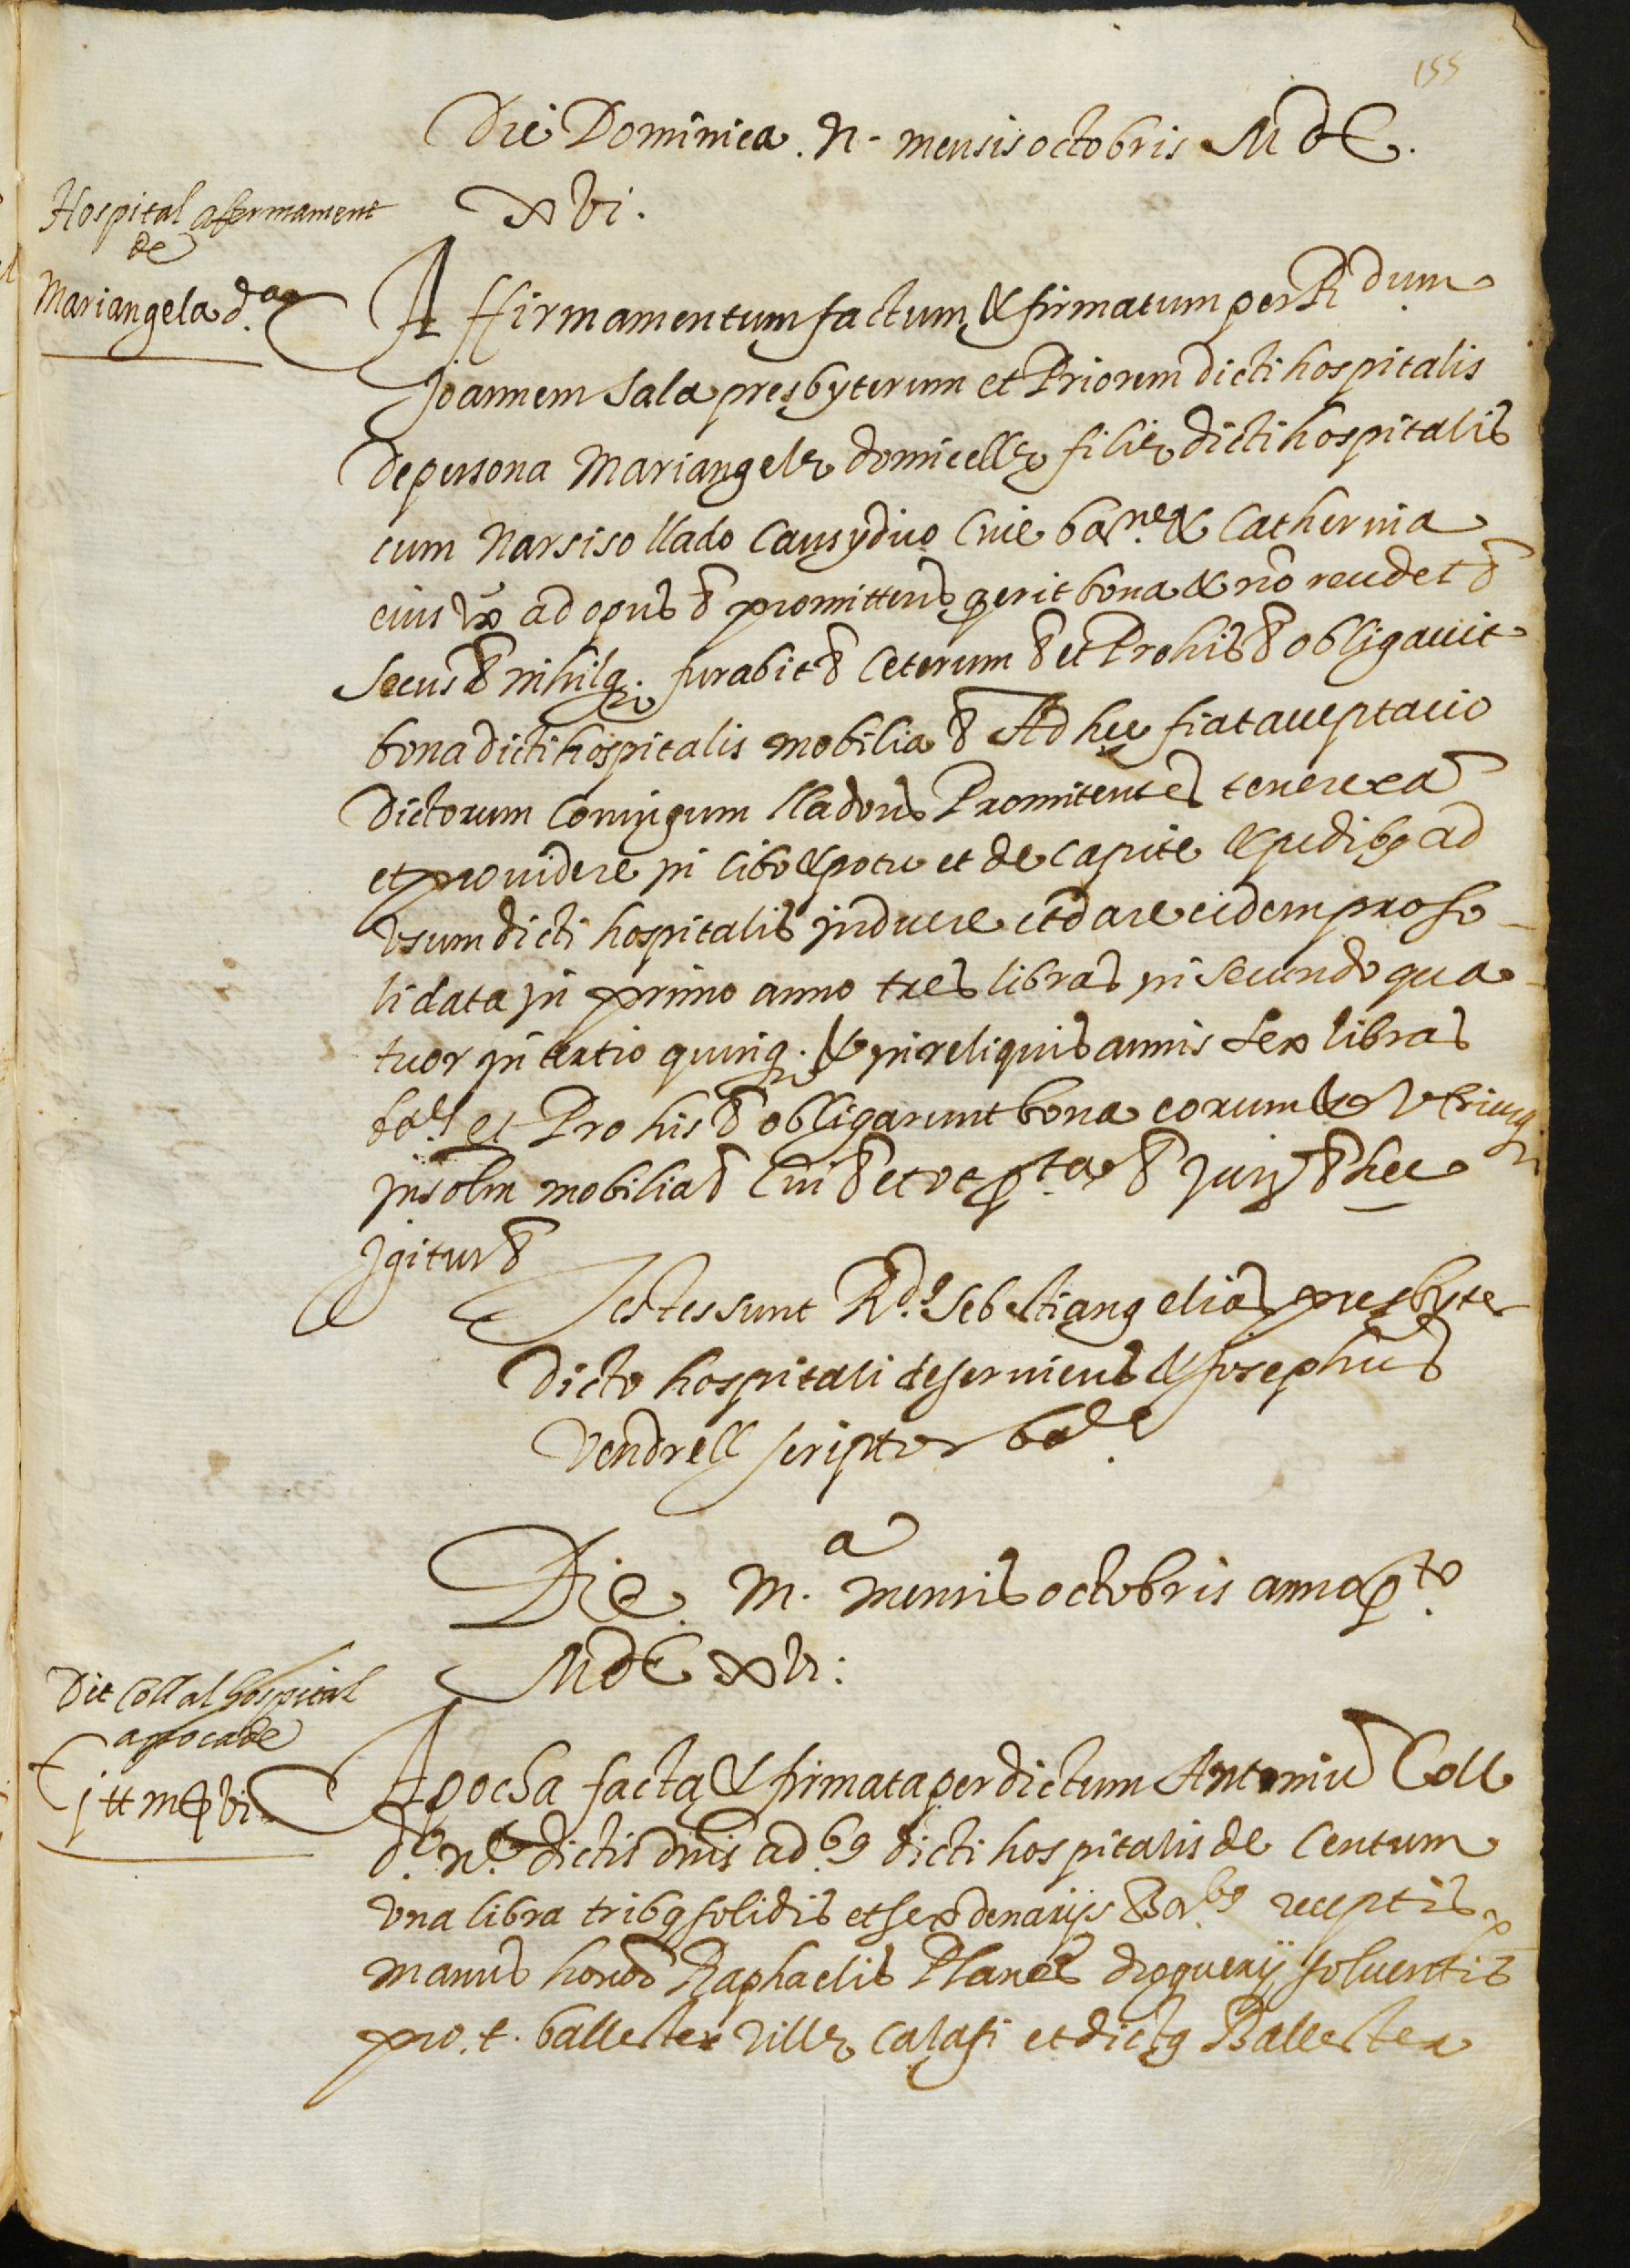 155
Die Dominica . n - mensis octobris MdC.
xvi.
Hospital afermament
de
Mariangela d.ª
Affirmamentum factum & firmatum per R.dum
Joannem Sala presbyterum et Priorem dicti hospitalis
de persona Mariangele domicelle filie dicti hospitalis
cum Narsiso llado Causydico Cive bar.ne & Catherina
eius vx ad opus & promittens q erit bona & no recedet &
Secus & nihilq. furabit & Ceterum & et Pro his & obligauit
bona dicti hospitalis mobilia & Ad hec fiat acceptacio
dictorum Coniugum lladons Promitentes tenere ea
et prouidere in cibo & potu et de capite & pedibq ad
vsum dicti hospitalis induere et dare eidem pro so-
lidata in primo anno tres libras in secundo qua-
tuor in tertio quinq. & in reliquis annis sex libras
et Pro his & obligarunt bona eorum & vtriusq.
insolm mobilia & Cui & et vt p.ta & Jurj & hec
Igitur &
Testes sunt R.ds Sebestianq elias presbyter
dicto hospitali deserviens & Josephus
Vendrell scriptor
Die. m.ª mensis octobris anno p.to
MdC xvi:
Dit Coll al hospital
apoca de
Apocha facta & firmata per dictum Antoniu Coll
dictis dnis ad.bq dicti hospitalis de Centum
vna libra tribq solidis et sex denarijs Bar.bq receptis p
manus honor Raphaelis Planes droguerij soluentis
pro. t. ballester ville calafi et dictq Ballester